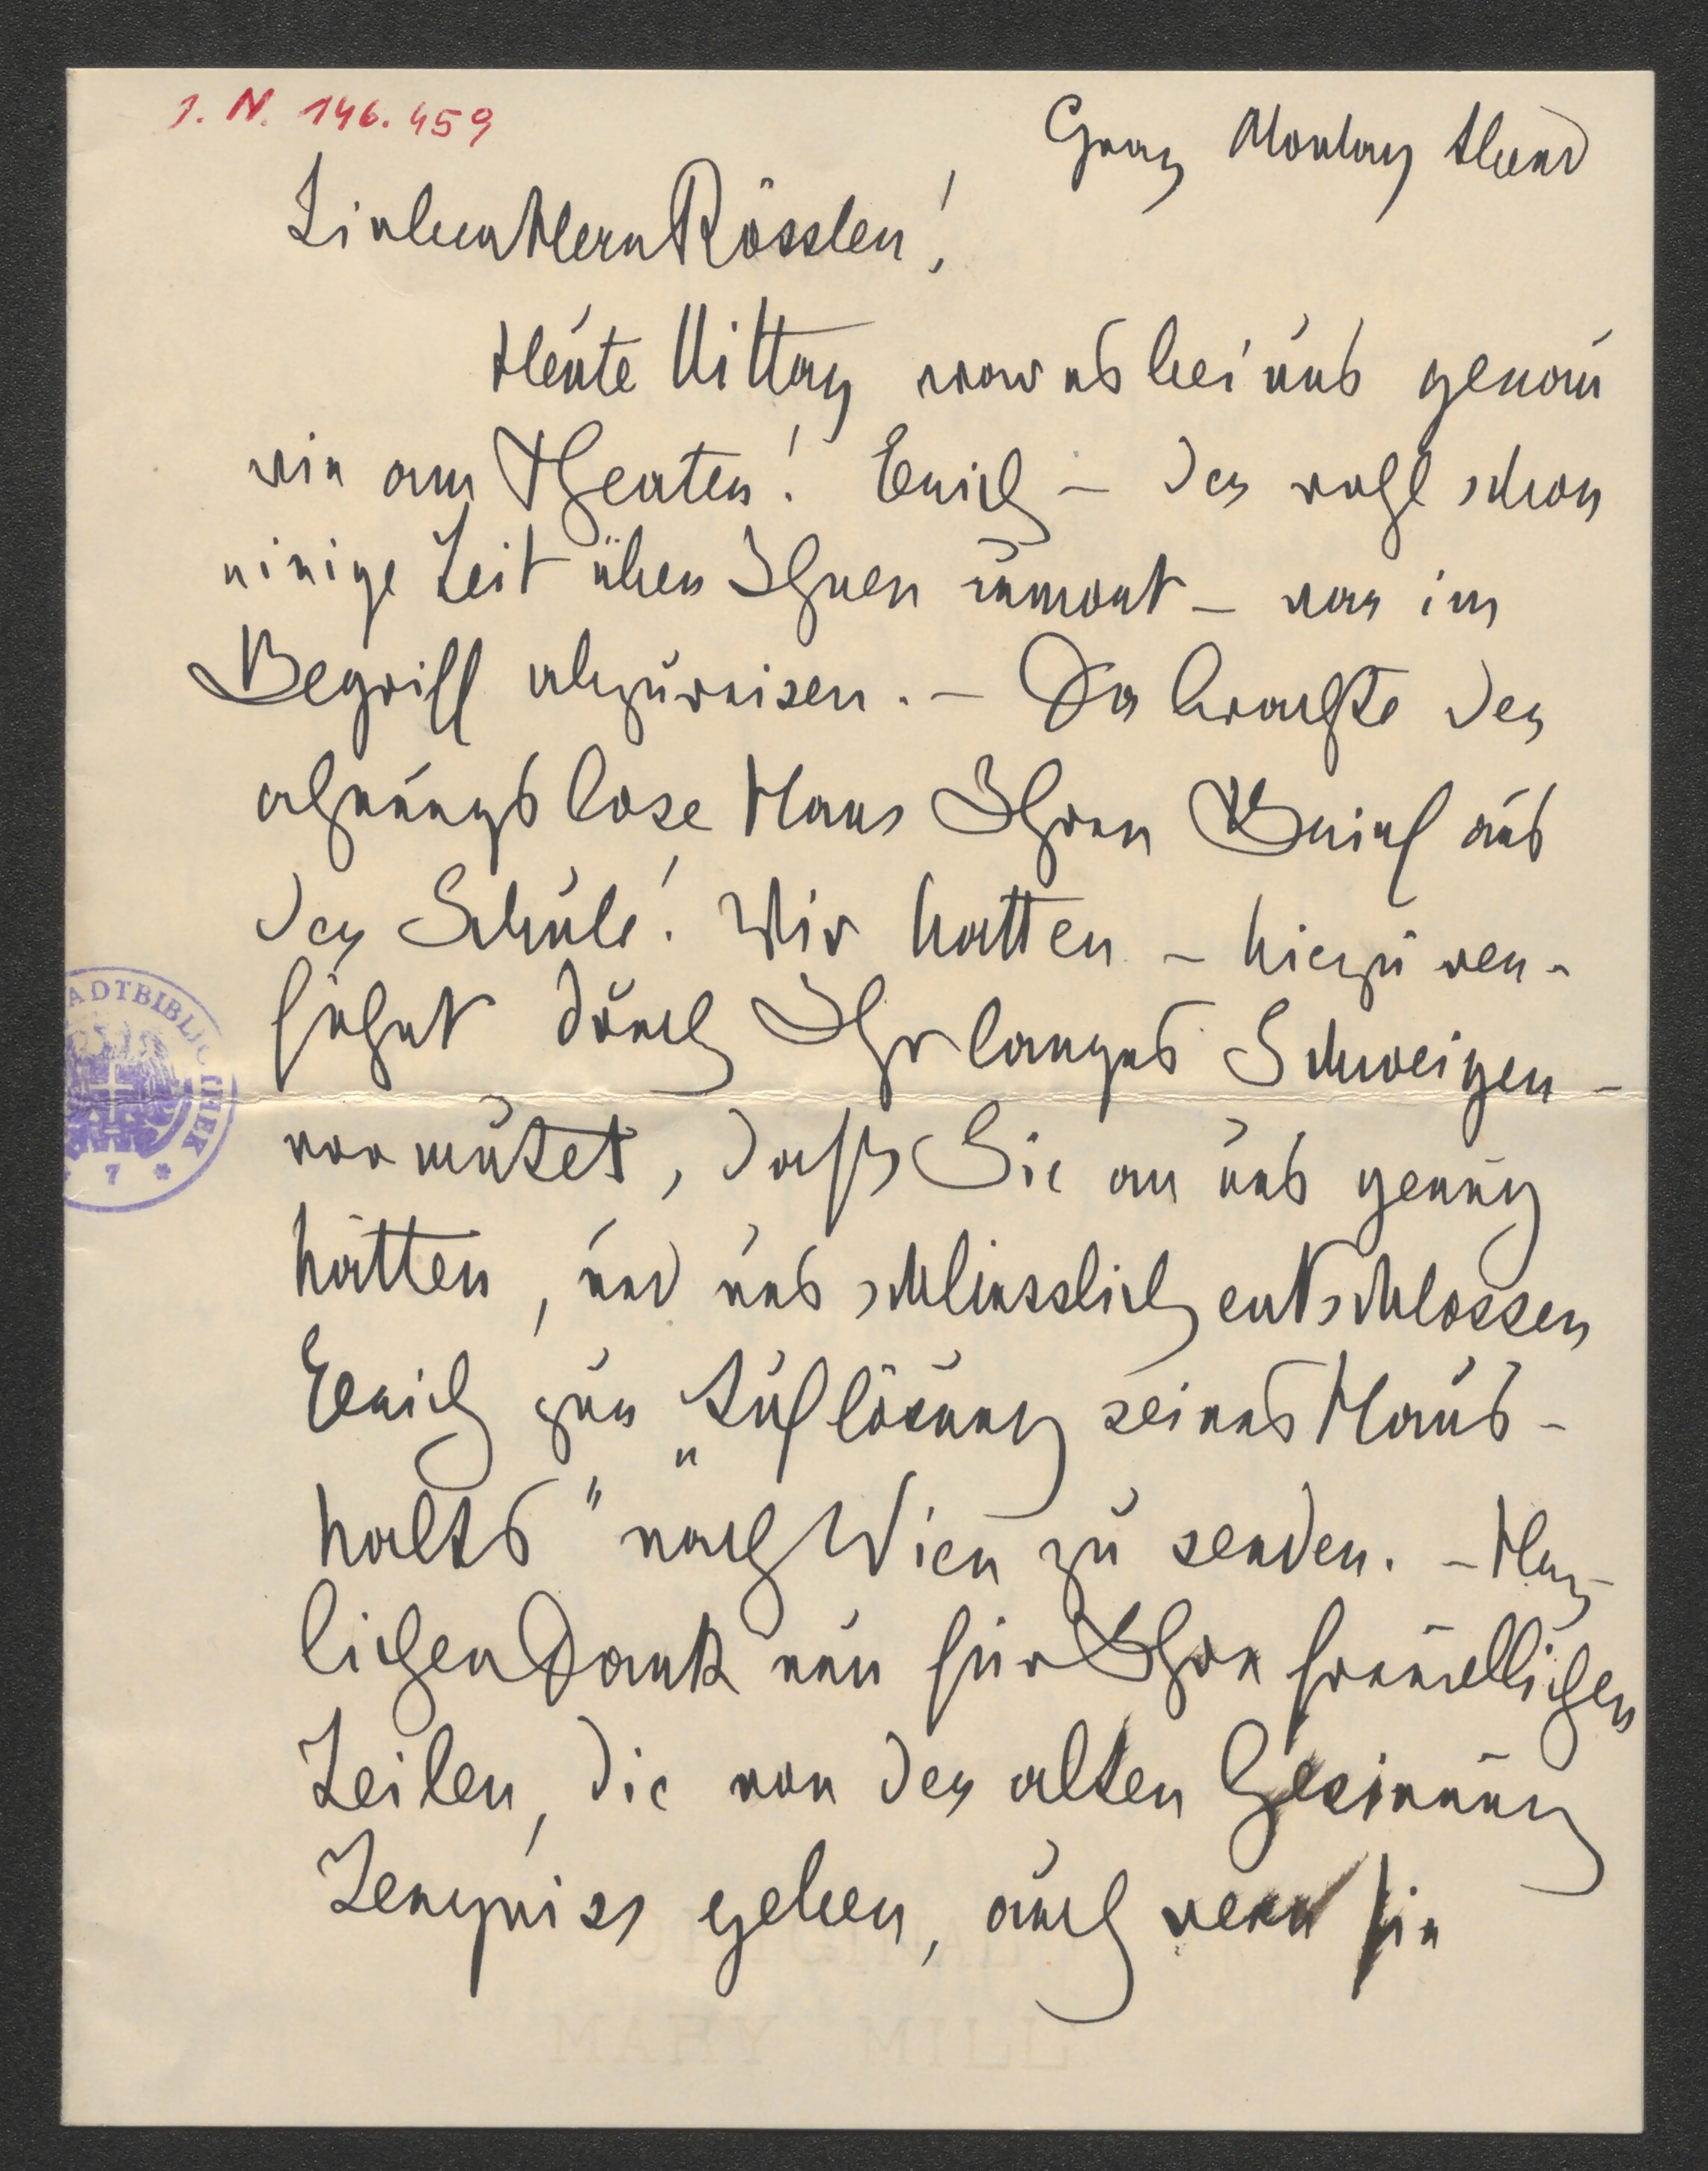 J. N. 146.459
Graz Montag Abend
Lieber Herr Rössler!
Heute Mittag war es bei uns genau
wie am Theater! Erich – der wohl schon
einige Zeit über Ihnen wohnt – war im
Begriff abzureisen. – Da brachte der
ahnungslose Hans Ihren Brief aus
der Schule! Wir hatten – hiezu ver-
führt durch Ihr langes Schweigen –
vermutet, daß Sie an uns genug
hätten, und uns schliesslich entschlossen
Erich zur „Auflösung seines Haus-
halts" nach Wien zu senden. – Herz-
lichen Dank nun für Ihre freundlichen
Zeilen, die von der alten Gesinnung
Zeugniss geben, auch wenn sie
STADTBIBLIOTHEK
* 7 *
ORIGINAL
MARY MILL